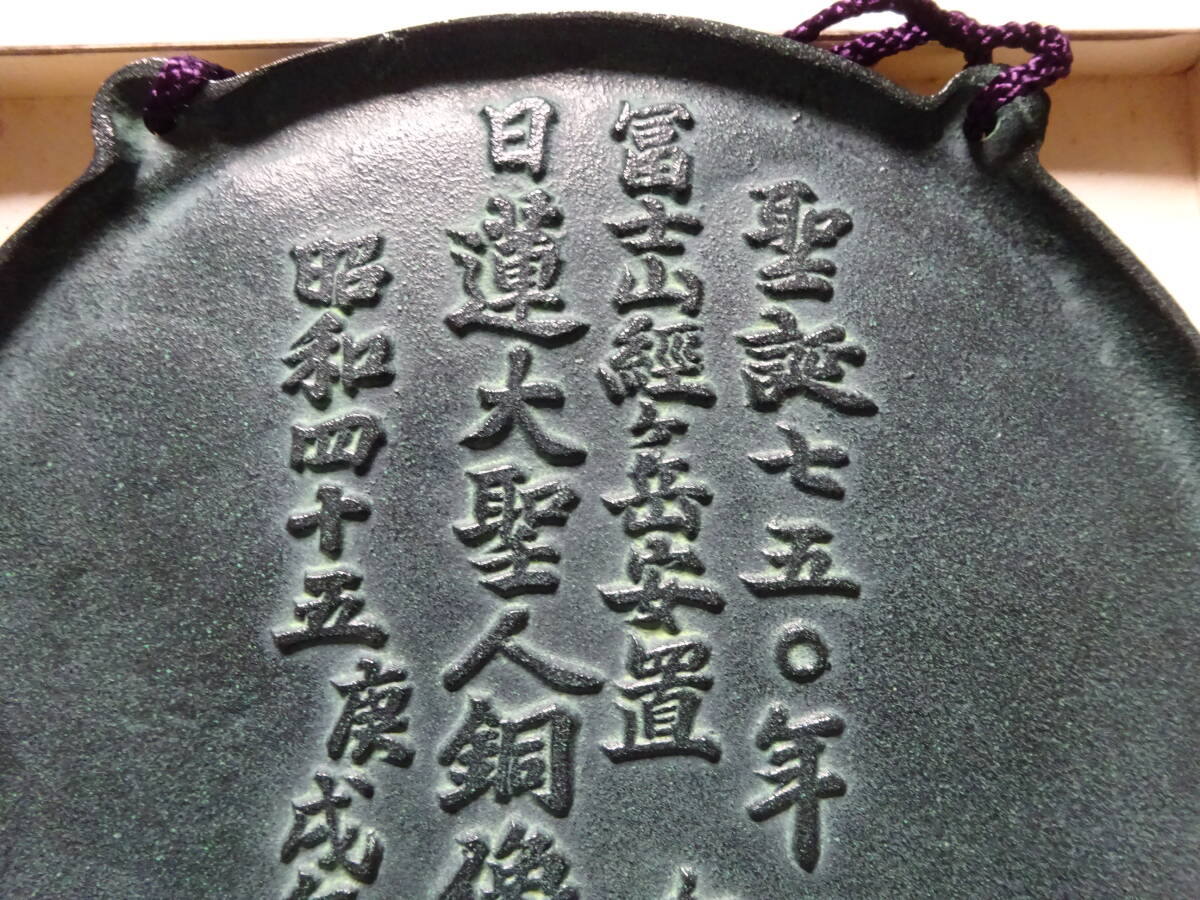 聖誕七五〇年
冨士山經ヶ岳安置
日蓮大聖人銅像
昭和四十五庚戌年